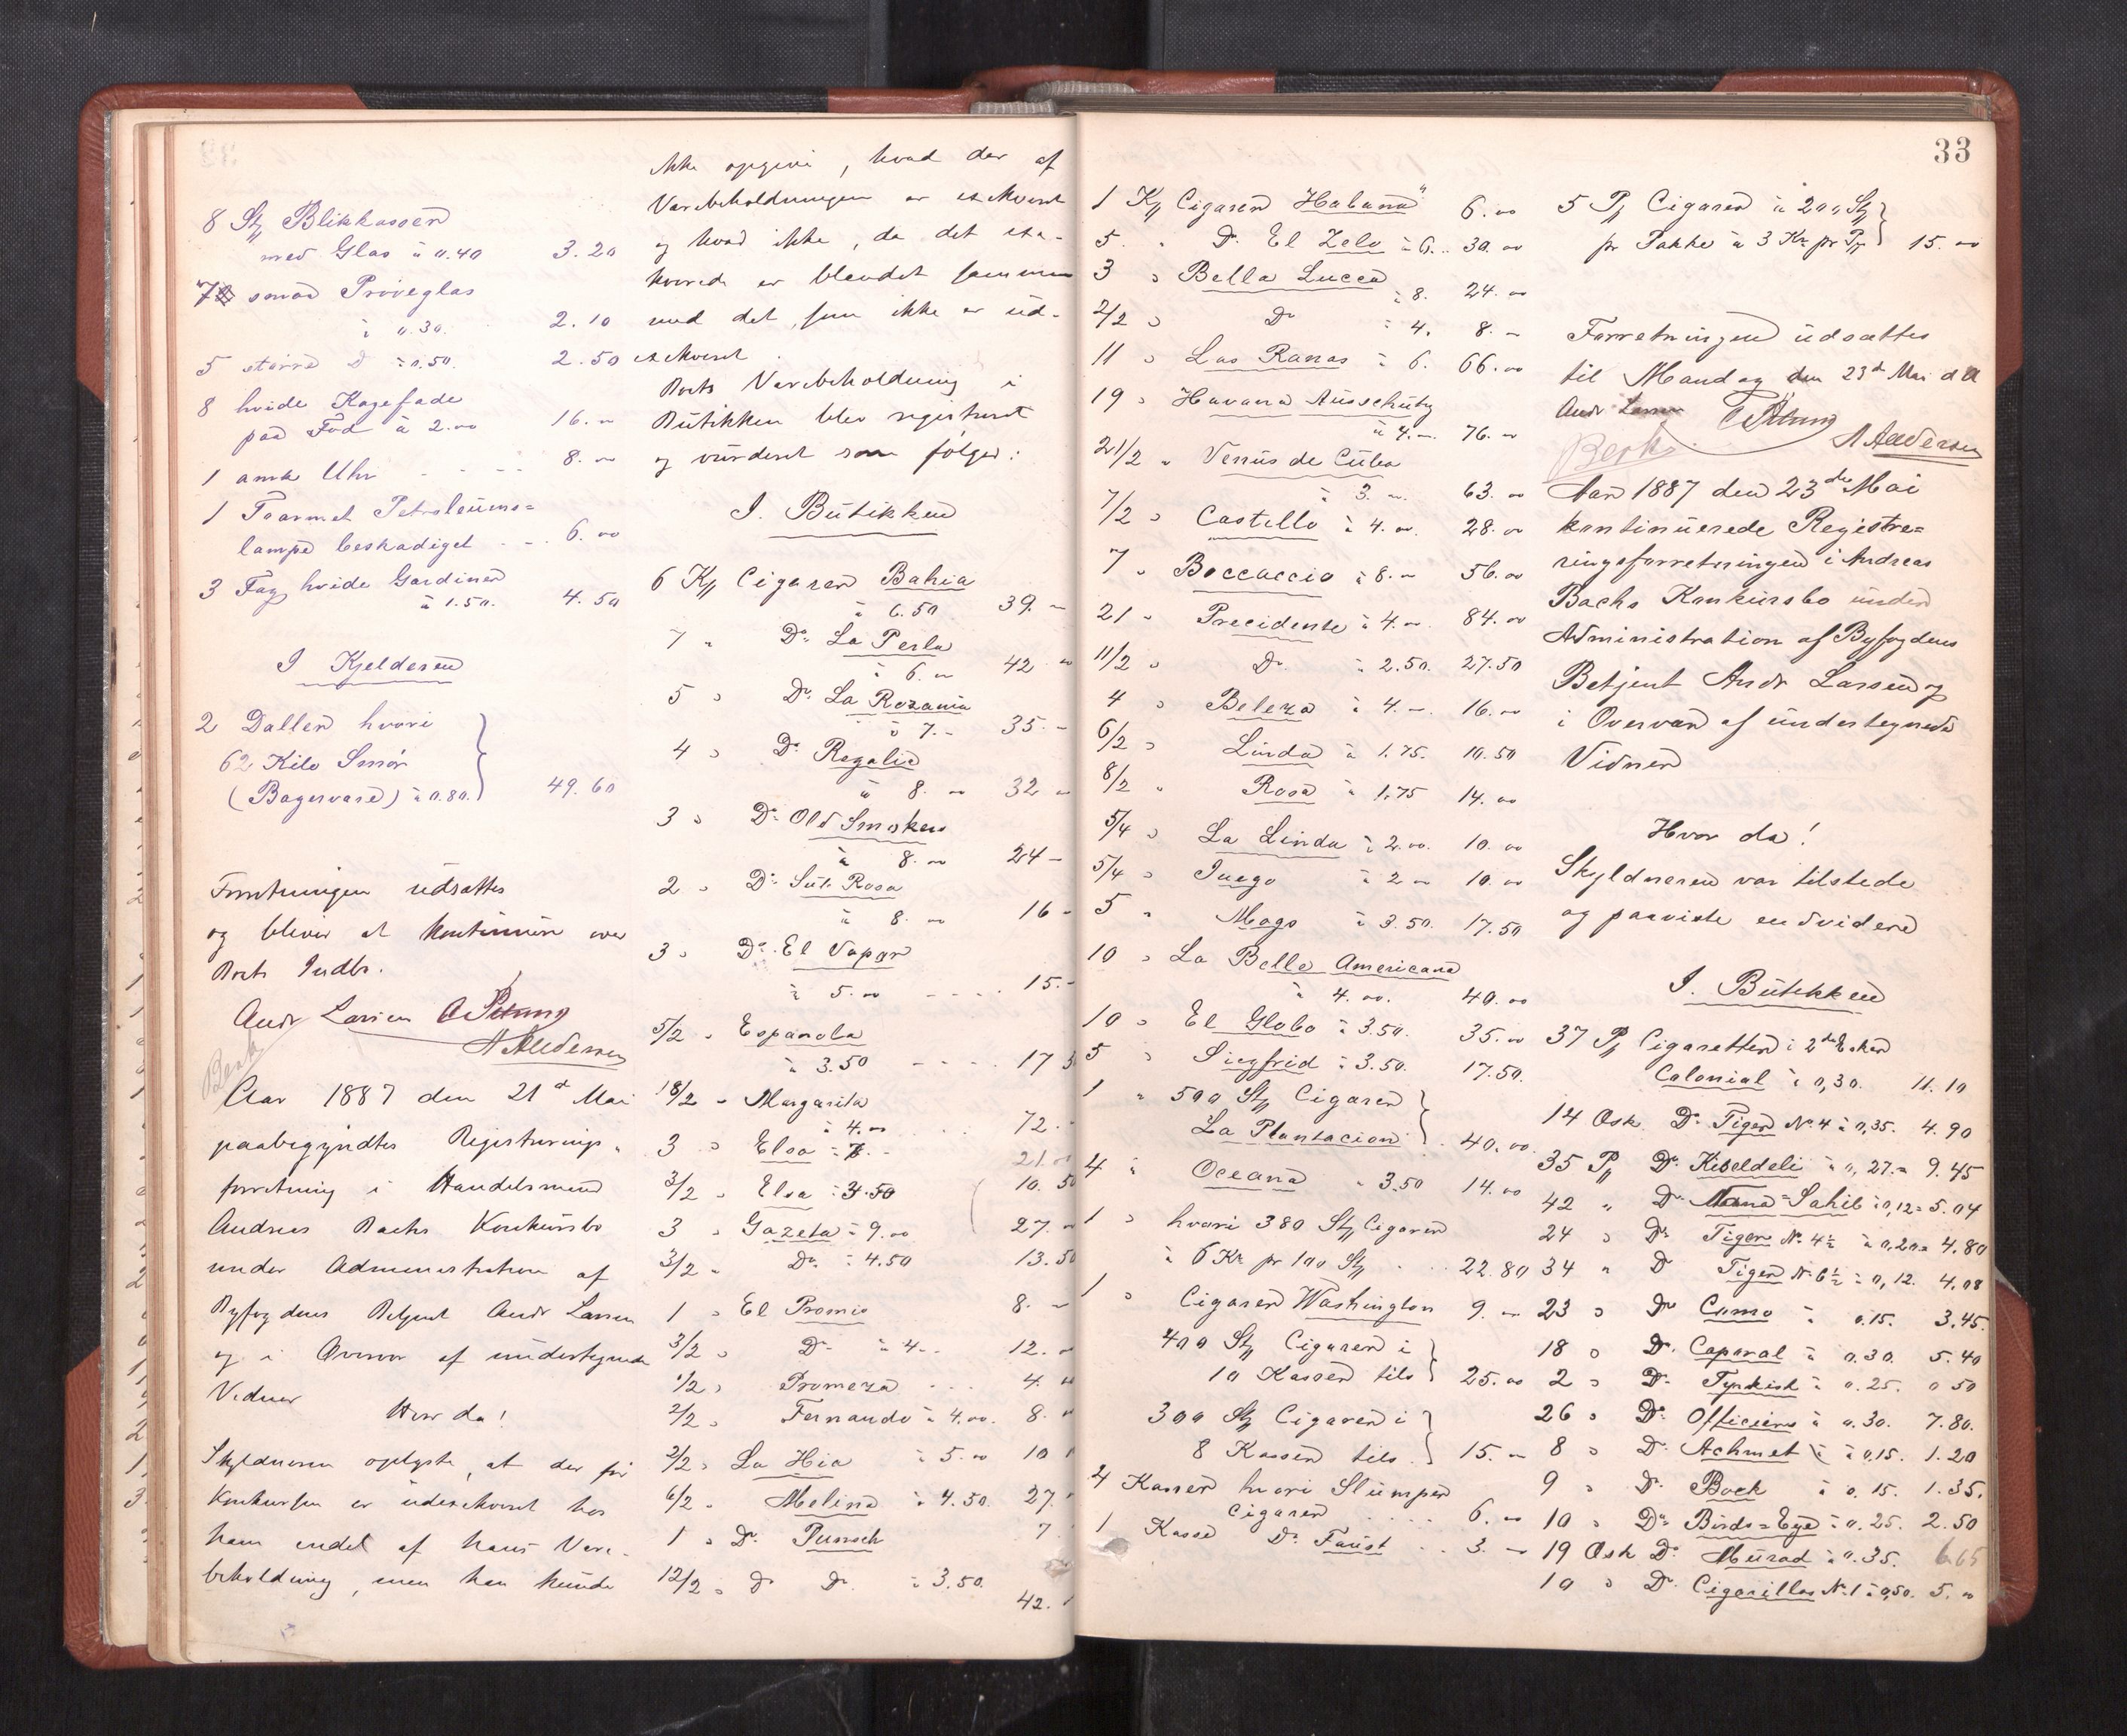 8 Stk Blikkasser
med Glas à 0.40 3.20
7 smaa Prøveglas
à 0.30. 2.10
5 større D à 0.50. 2.50
8 hvide Kagefade
paa Fod à 2.00 16.00
1 amk Uhr - - - 8.00
1 Toarmet Petroleums=
lampe beskadiget - - . 6.00
3 Fag hvide Gardiner
à 1.50. 4.50
I Kjelderen
2 Daller hvori
62 Kilo Smør
(Bagervare) à 0.80. 49.60
Forretningen udsattes
og bliver at kontinuere over
Boets Indbo.
Andr Larsen
A Andersen
Berk
Aar 1887 den 21de Mai
paabegyndtes Registrerings-
forretning i Handelsmand
Andreas Bachs Konkursbo
under Administration af
Byfogdens Betjent Andr Larsen
og i Overvær af undertegnede
Vidner
Hvor da!
Skyldneren oplyste, at der før
Konkursen er udexekveret hos
ham endel af hans Vare-
beholdning, men han kunde
ikke opgive, hvad der af
Varebeholdningen er exekveret
og hvad ikke, da det exe-
kverede er blandet sammen
med det, som ikke er ud-
exekveret.
Boets Varebeholdning i
Butikken blev registreret
og vurderet som følger:
I. Butikken
6 Ks Cigarer Bahia
à 6.50 39.-
7 " Do La Perla
à 6.00 42.00
5 " Do La Rozania
à 7.- 35.-
4 " Do Regalia
à 8.00 32.00
3 " Do Old Smokers
à 8.00 24-
2 " Do Sub Rosa
à 8.00 16-
3 " Do El Vapor
à 5.00 - - - . 15.-
5/2 " Espanola
à 3.50 - - - . 17.5
18/2 " Margarita
à 4.00 72.-
3 " Elsa à 7.- 21.00
3/2 " Elsa à 3.50 10.50
3 " Gazeta à 9.00 27.00
3/2 " Do à 4.50 13.50
1 " El Promio 8.-
3/2 " Do à 4-. 12.00
1/2 " Promeza . . . 4.00
2/2 " Fernando à 4.00. 8.00
2/2 " La Hia à 5.00 10
6/2 " Melina à 4.50. 27.
1 " Do Punsch 7.
12/2 " D Do à 3.50.
42.
33
1 Ks Cigarer Habana" 6.00
5 " Do El Zelo à 6.. 30.00
3 " Bella Lucca
à 8. 24.00
2/2 " Do à 4. 8.-
11 " Las Ranas à 6. 66.00
19 " Havana Ausschutz
à 4.-. 76.00
21/2 " Venus de Cuba
à 3.00. 63.00
7/2 " Castillo à 4.00. 28.00
7 " Boccaccio à 8.00 56.00
21 " Precidente à 4.00. 84.00
11/2 " Do à 2.50. 27.50
4 " Beleza à 4.-. 16.00
6/2 " Linda à 1.75. 10.50
8/2 " Rosa à 1.75 14.00
5/4 " La Linda à 2.00. 10.00
5/4 " Juego à 2.00 10.00
5 " Mogo à 3.50. 17.50
10 " La Bella Americana
à 4.00. 40.00
10 " El Globo à 3.50. 35.00
5 " Siegfrid à 3.50. 17.50.
1 " 500 Stk Cigarer
La Plantacion . 40.00.
4 " Oceana " 3.50 14.00
1 " hvori 380 Stk Cigarer
à 6 Kr pr 100 Stk . . . 22.80
1 " Cigarer Washington 9.00
400 Stk Cigarer i
10 Kasser tils 25.00
300 Stk Cigarer i
8 Kasser tils . 15.00
4 Kasser hvori Slumper
Cigarer . . . . 6.00
1 Kasse Do Faust . . 3.00
5 Pk Cigarer à 20 Stk
pr Pakke à 3 Kr pr Pk 15.00
Forretningen udsættes
til Mandag den 23de Mai d A
Andr Larsen
A Andersen
Berk
Aar 1887 den 23de Mai
kontinuerede Registre=
ringsforretningen i Andreas
Bachs Konkursbo under
Administration af Byfogdens
Betjent Andr Larsen og
i Overvær af undertegnede
Vidner
Hvor da!
Skyldneren var tilstede
og paaviste endvidere
I. Butikken
37 Pk Cigaretter i 2de Esker
Colonial à 0,30. 11.10
14 Æsk Do Tiger No 4 à 0,35. 4.90
35 Pk Do Kibeldeli à 0,27= 9.45
42 " Do Nana=Sahib à 0,12= 5.04
24 " Do Tiger No 4½ à 0,20= 4.80
34 " D Tiger No 6½ à 0,12. 4.08
23 " Do Cumo à 0.15. 3.45.
18 " Do Caporal à 0.30. 5.40
2 " Do Tyrkisk à 0.25. 0 50
26 " Do Officiers à 0.30. 7.80.
8 " Do Achmet à 0.15. 1.20
9 " Do Bock à 0.15. 1.35.
10 " Do Birds=Eye à 0.25. 2.50
19 Æsk Do Murad à 0.35. 6.65
10 " Do Cigarillos No 1 à 0,50. 5.00